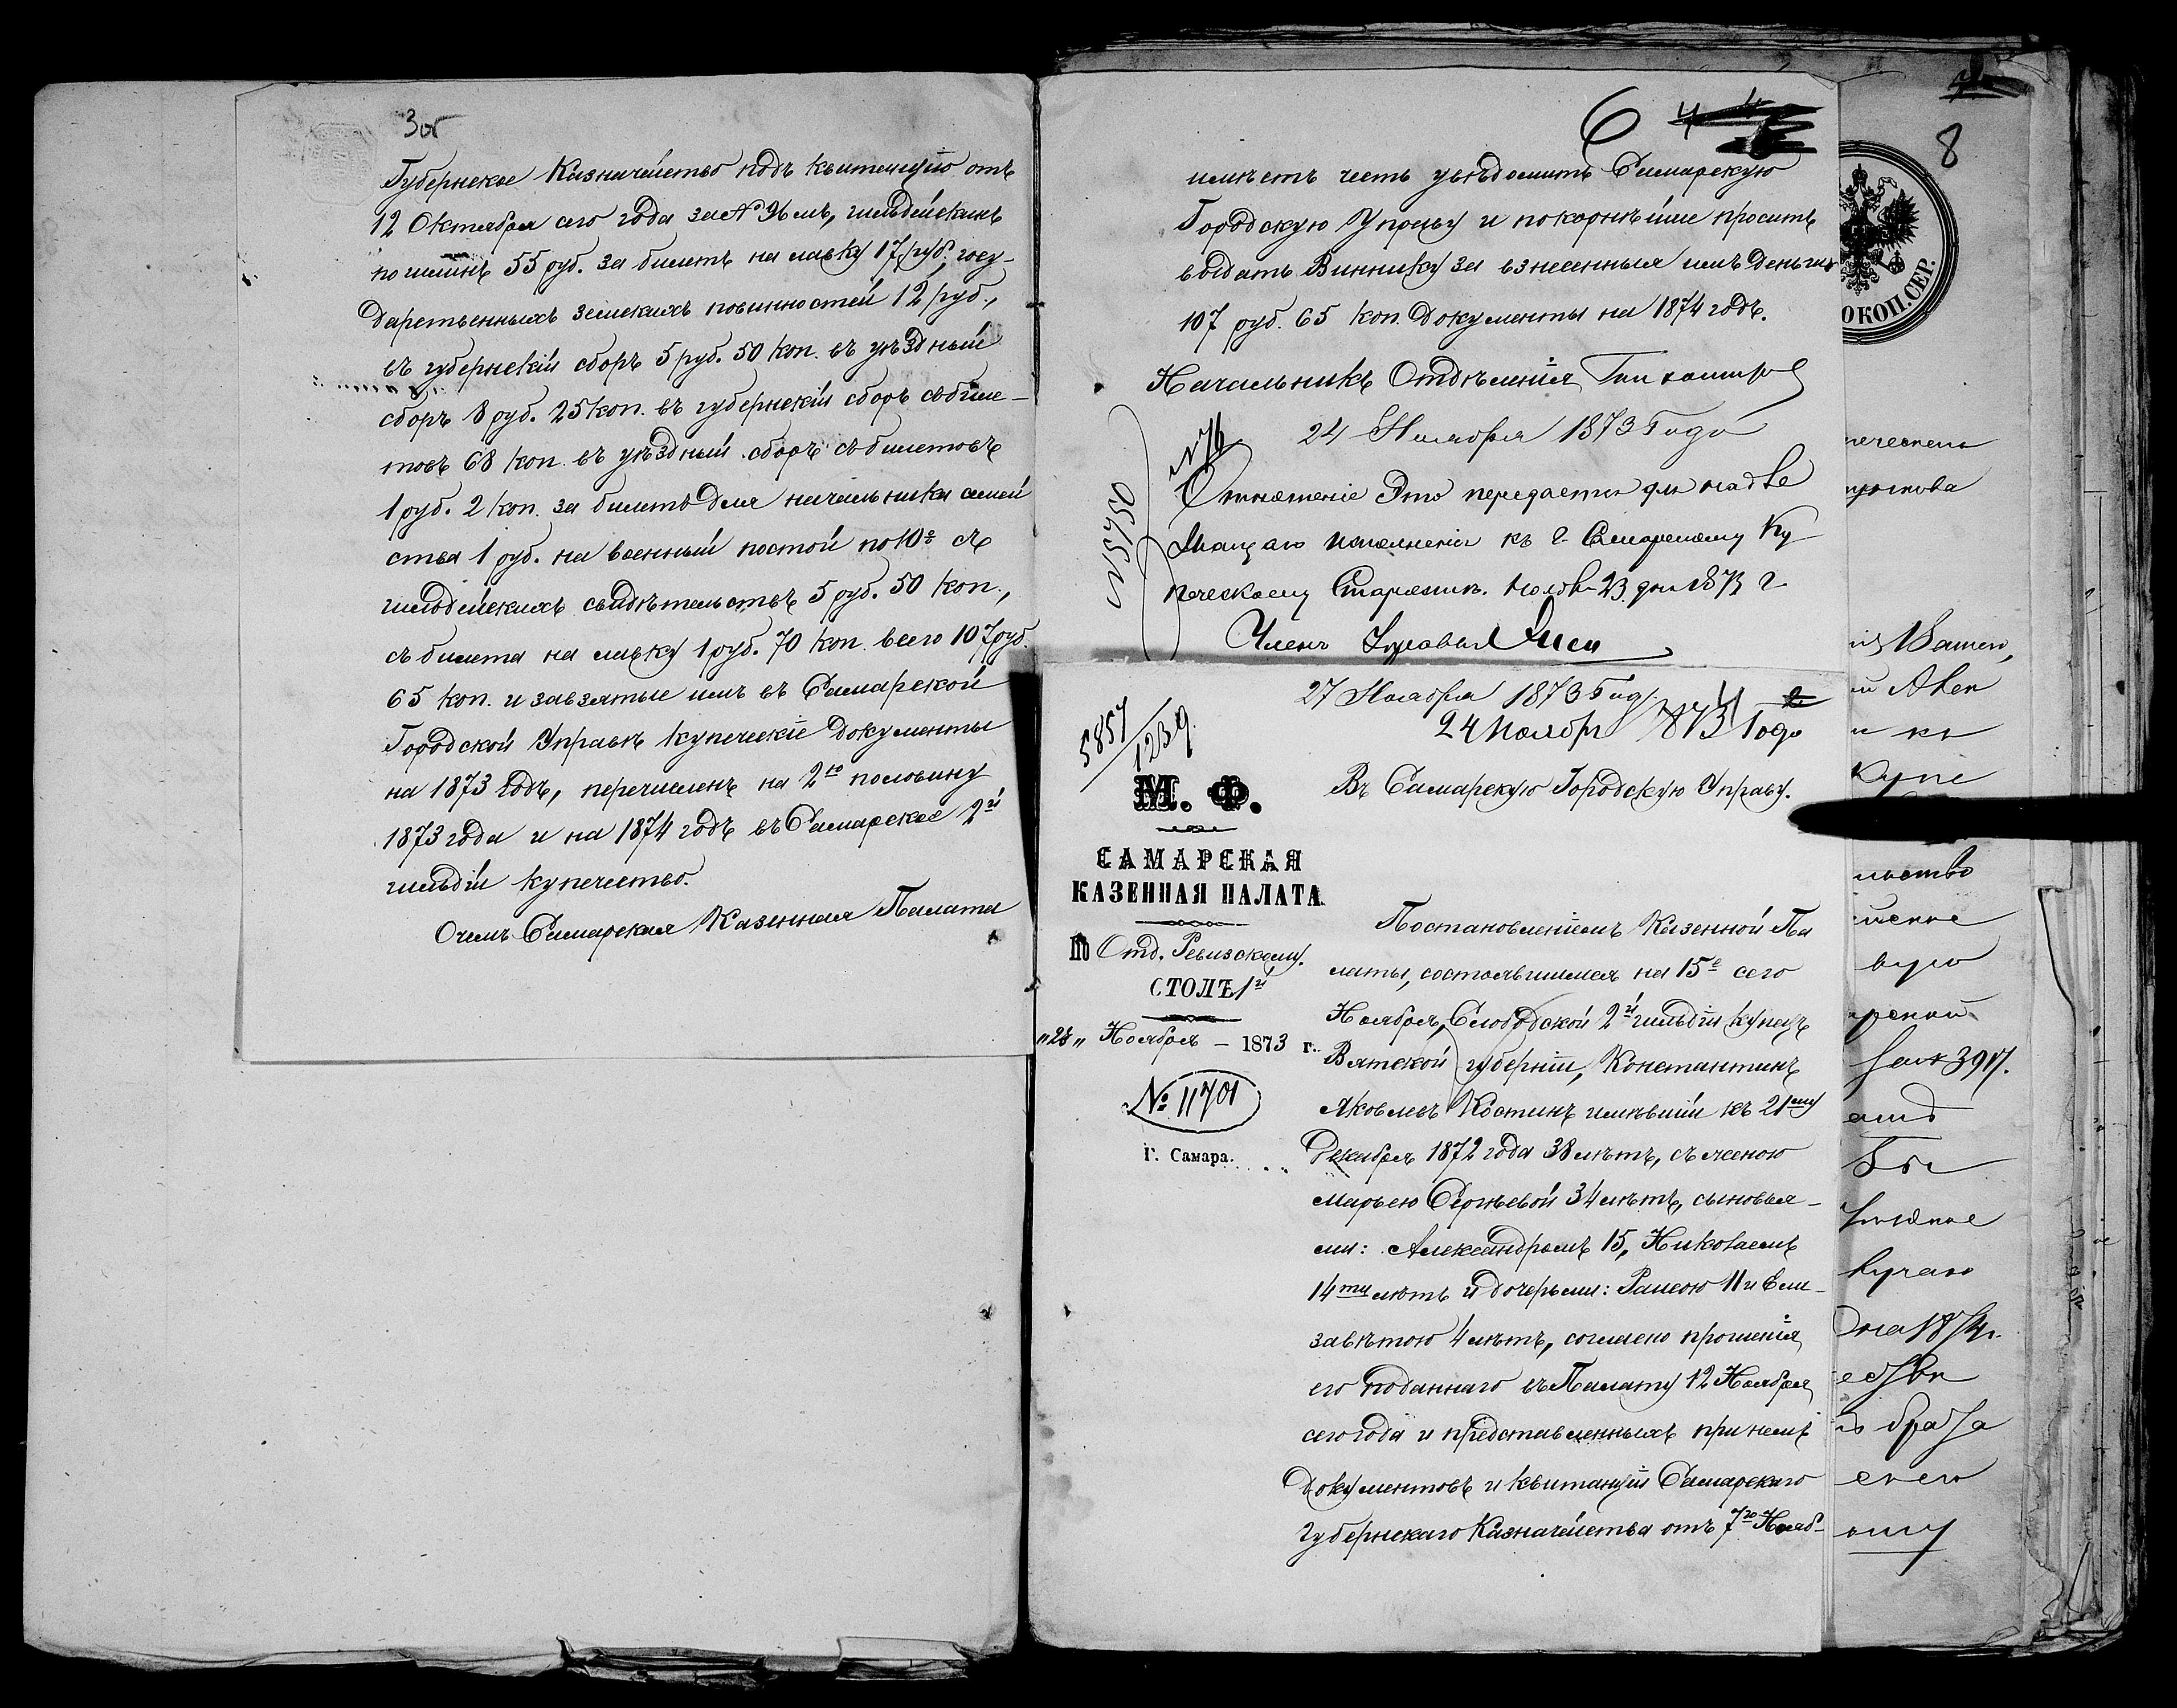 3об
Губернское Казначейство подъ квитанцiю отъ
12 Октября сего года за № 96мъ, гильдейскихъ
пошлинъ 55 руб. за билетъ на лавку 17 руб. госу-
дарственныхъ земскихъ повинностей 12 руб.,
въ губернскiй сборъ 5 руб. 50 коп. въ уѣздный
сборъ 8 руб. 25 коп. въ губернскiй сборъ съ биле-
товъ 68 коп. въ уѣздный сборъ съ билетовъ
1 руб. 2 коп. за билетъ для начальника семей
ства 1 руб. на военный постой по 10% съ
гильдейскихъ свидѣтельствъ 5 руб. 50 коп.,
съ билета на лавку 1 руб. 70 коп. всего 107 руб.
65 коп. и за взятые имъ въ Самарской
Городской Управѣ купеческiе документы
на 1873 годъ, перечисленъ на 2ю половину
1873 года и на 1874 годъ въ Самарское 2й
гильдiи купечество.
О чемъ Самарская Казенная Палата
6
имѣетъ честь увѣдомить Самарскую
Городскую Управу и покорнѣйше проситъ
выдать Виннику за взнесенныя имъ деньги
107 руб. 65 коп. документы на 1874 годъ.
Начальникъ Отдѣленiя
24 Ноября 1873 Года
№ 76
№ 5750
Отношенiе Это передается для надле
жащаго исполненiя къ г. Самарскому Ку
печескому Старостѣ. Ноября 23 дня 1873 г
Членъ Управы
27 Ноября 1873 Года
24 Ноября 1873 Года
4
5857
1239
М. Ф.
САМАРСКАЯ
КАЗЕННАЯ ПАЛАТА
По Отд. Ревизскому.
СТОЛЪ 1й
„23„ Ноября – 1873 г.
№ 11701
Г. Самара.
Въ Самарскую Городскую Управу.
Постановленiемъ Казенной Па
латы, состоявшимся на 15е сего
Ноября, Слободской 2й гильдiи купецъ
Вятской губернiи, Константинъ
Яковлевъ Костинъ имѣвшiй къ 21му
Декабря 1872 года 38 лѣтъ, съ женою
Марьею Сергѣевой 34 лѣтъ, сыновья-
ми: Александромъ 15, Николаемъ
14ти лѣтъ и дочерьми: Раисою 11 и Ели-
заветою 4 лѣтъ, согласно прошенiя
его поданнаго въ Палату 12 Ноября
сего года и представленныхъ при немъ
документовъ и квитанцiи Самарскаго
Губернскаго Казначейства отъ 7го Нояб-
8
0 КОП. СЕР.